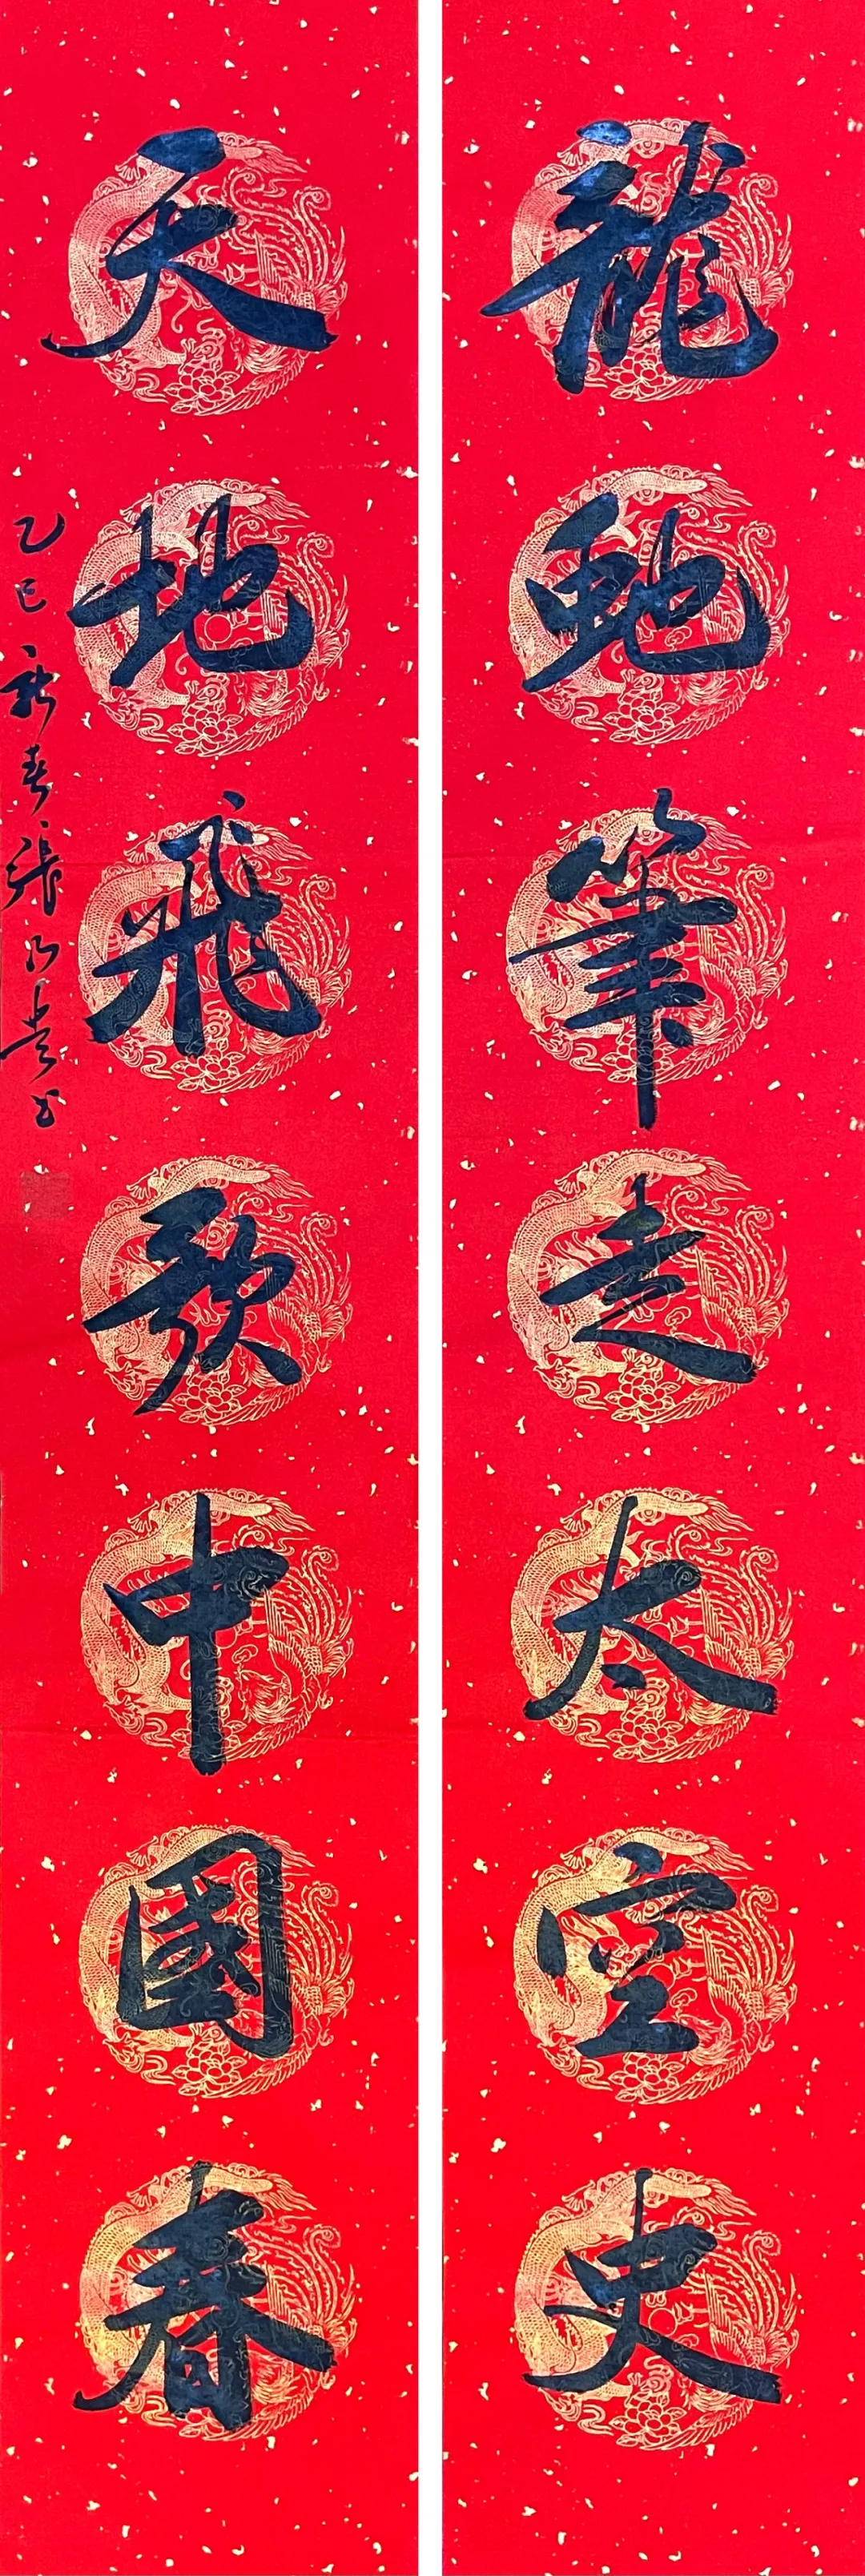 龍馳筆走太空史
天地飛歌中國春
乙巳新春張